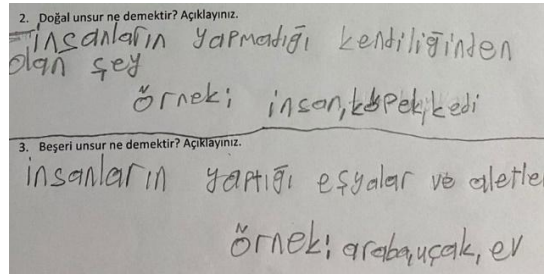 2. Doğal unsur ne demektir? Açıklayınız.
insanların yapmadığı kendiliğinden
olan şey
örnek; insan, köpek, kedi
3. Beşeri unsur ne demektir? Açıklayınız.
insanların yaptığı eşyalar ve aletle
örnek; araba, uçak, ev